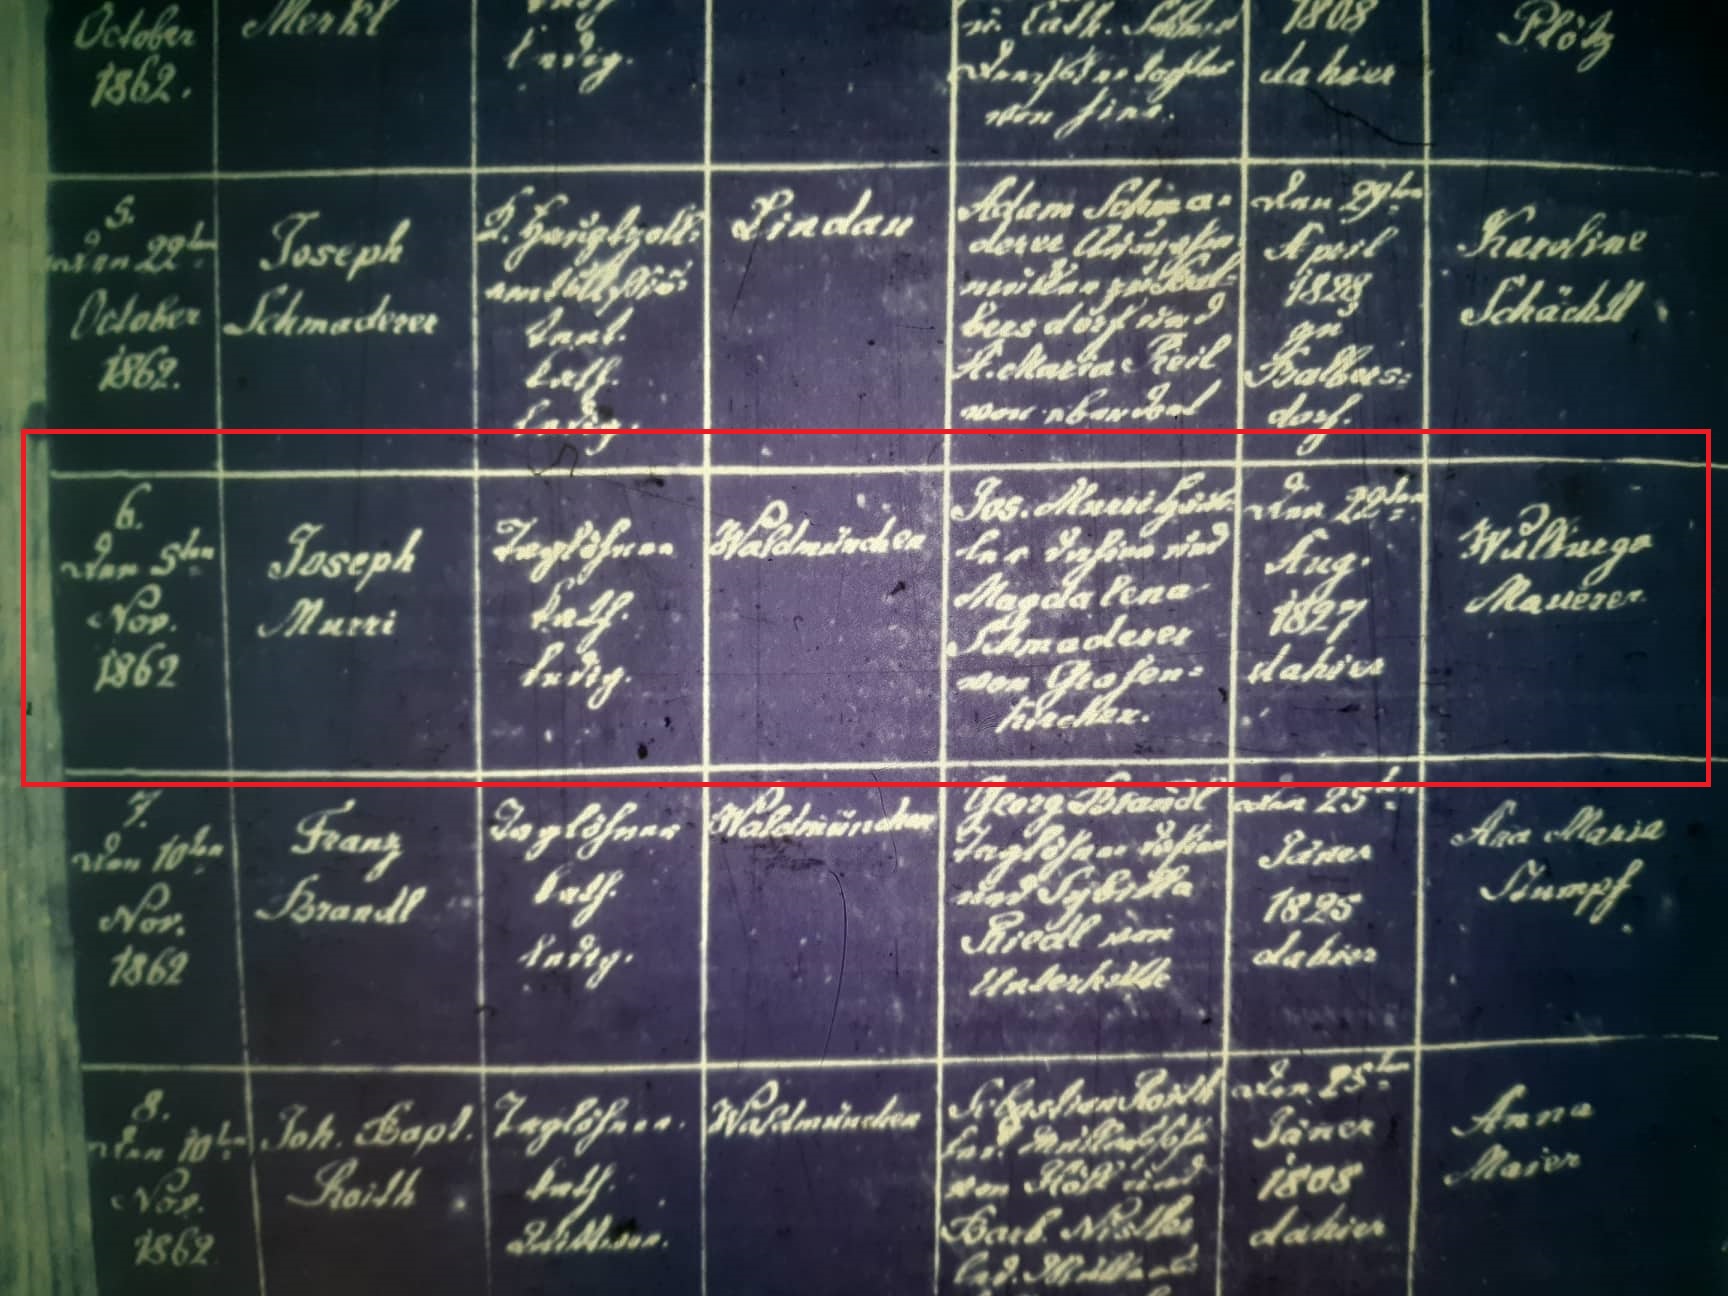 October
1862.
Merkl
kath.
ledig.
u. Cath.
von hier.
1808
dahier
Plötz
5.
den 22ten
October
1862.
Joseph
Schmaderer
kath.
ledig.
Lindau
Adam Schma-
derer
und
A. Maria Keil
von eben dort
den 29ten
April
1828
zu
Balbers-
dorf.
Karoline
Schächtl
6.
den 5ten
Nov.
1862
Joseph
Murri
Taglöhner
kath.
ledig.
Waldmünchen
Jos. Murri Häus-
ler dahier und
Magdalena
Schmaderer
von Grafen-
kirchen.
den 22ten
Aug.
1827
dahier
Walburga
Mauerer
7.
den 10ten
Nov.
1862
Franz
Brandl
Taglöhner
kath.
ledig.
Waldmünchen
Georg Brandl
Taglöhner dahier
und
Riedl von
Unterhütte
den 25ten
Jäner
1825
dahier
Ana Maria
Stumpf
8.
den 10ten
Nov.
1862
Joh. Bapt.
Roith
Taglöhner.
kath.
Wittwer.
Waldmünchen
Sebastian Roith
von und
Barb.
den 25ten
Jäner
1808
dahier
Anna
Maier